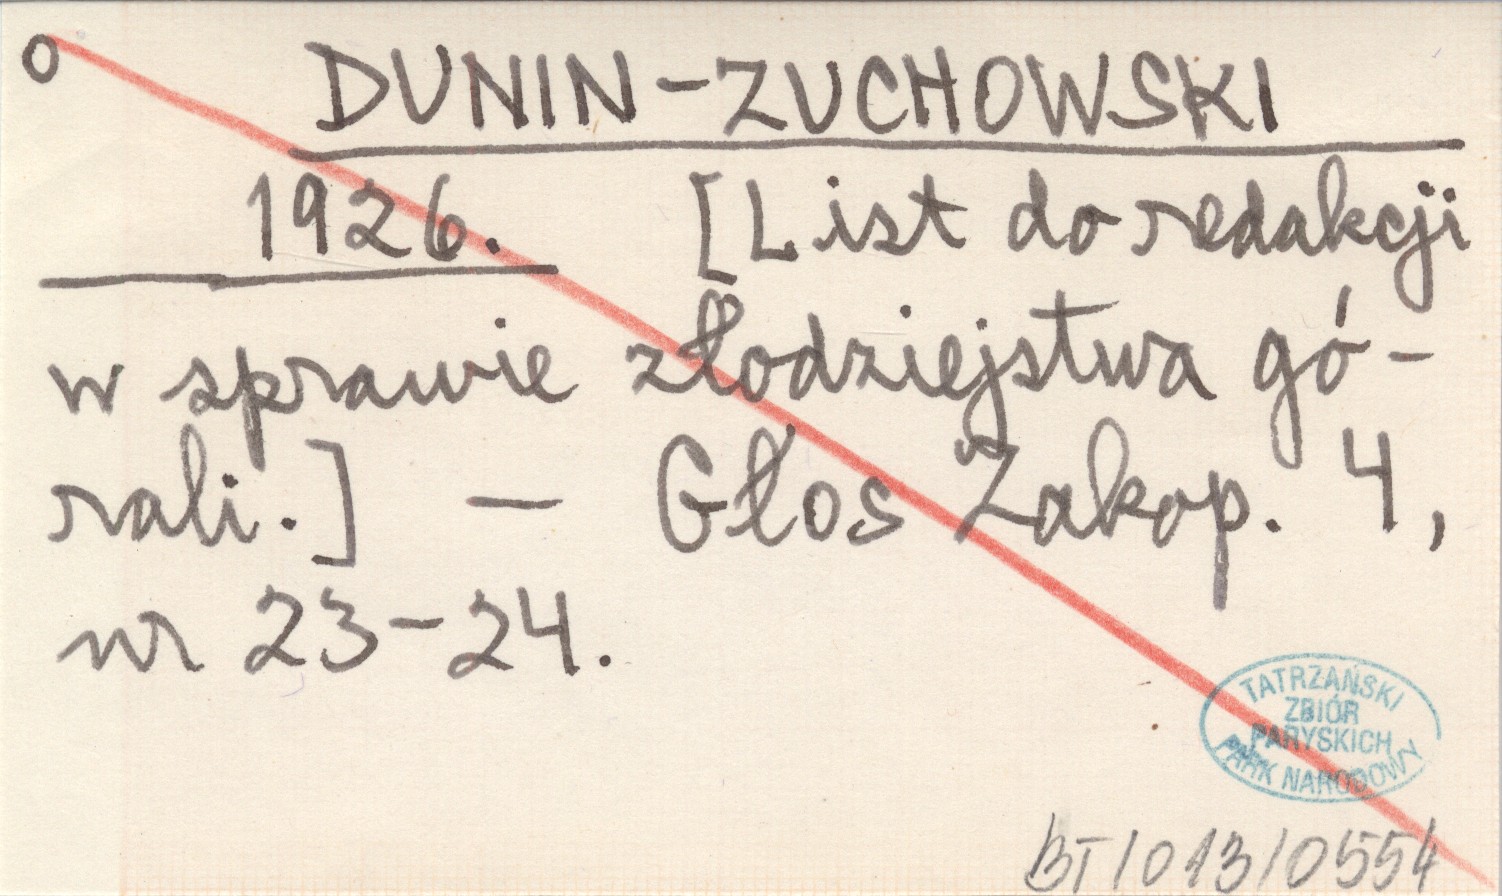 o DUNIN-ZUCHOWSKI
1926. [List do redakcji
w sprawie złodziejstwa gó-
rali.] — Głos Zakop. 4,
nr 23-24.
TATRZAŃSKI
ZBIÓR
PARYSKICH
PARK NARODOWY
BT/013/0554